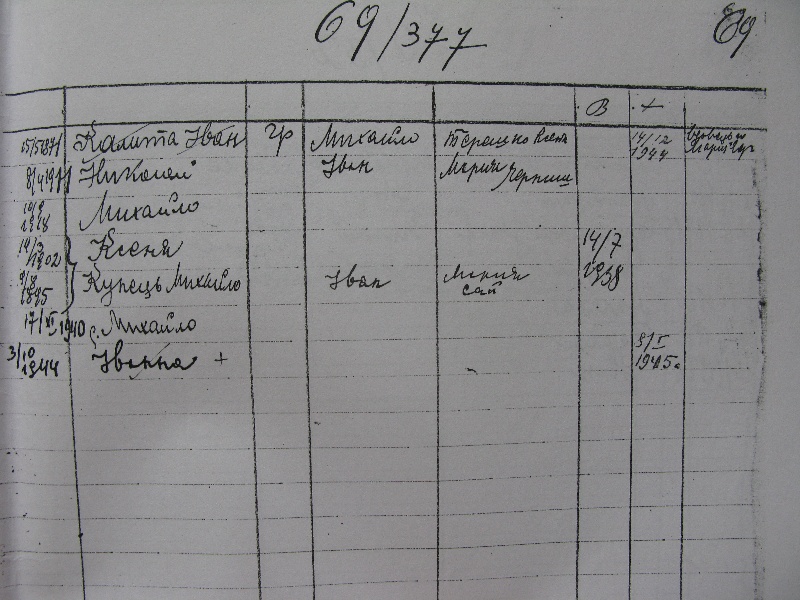 69/377 69
В +
15/5 1871 Калита Іван гр Михайло Терешко Ксеня 14/12 1944
8/4 1911 Николай Іван Мария Черниш
1918 Михайло
14/3 1902 Ксеня 14/7 1938
1895 Купець Михайло Іван Мария Сай
17/XI 1940 с. Михайло
3/10 1944 Іванна + 9/I 1945.